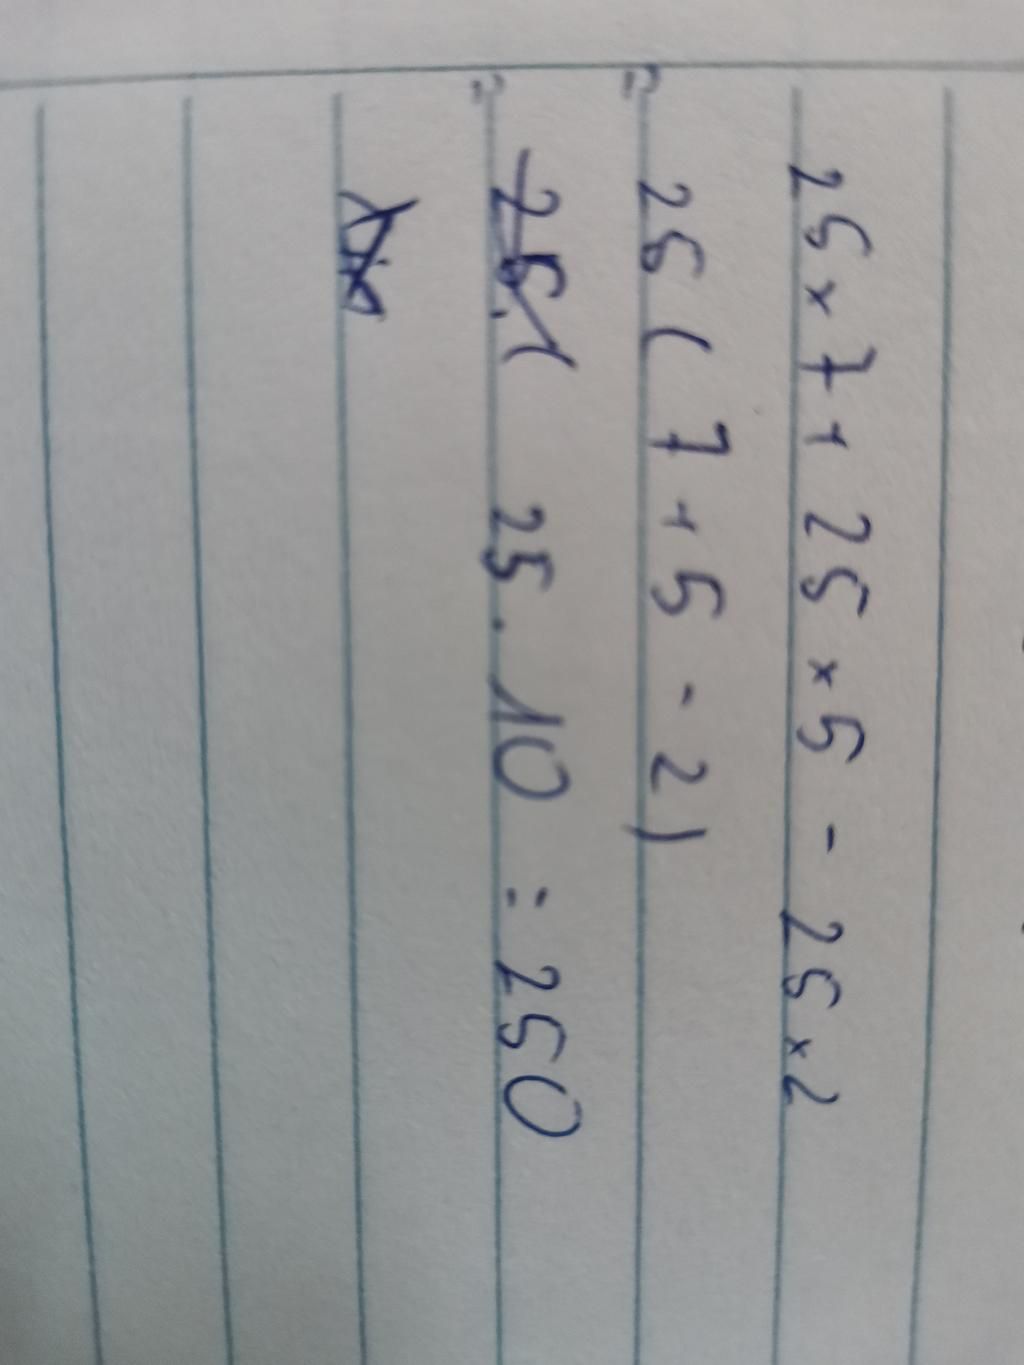 25 × 7 + 25 × 5 - 25 × 2
= 25 ( 7 + 5 - 2 )
= 25 . 10 = 250